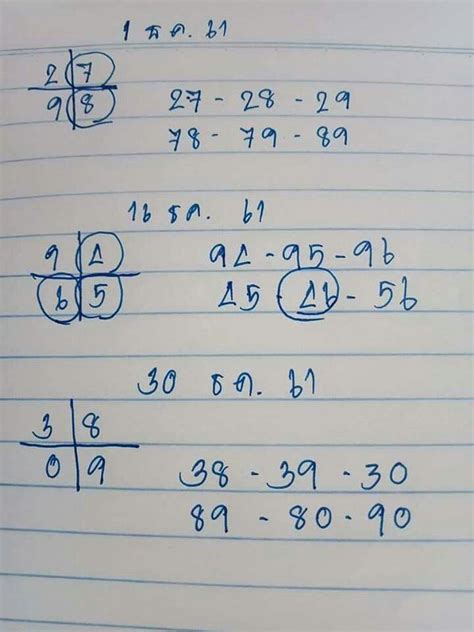 1 ธ ค. 61
2 7
9 8
27 - 28 - 29
78 - 79 - 89
16 ธ ค. 61
9 4
6 5
94 - 95 - 96
45 - 46 - 56
30 ธ ค. 61
3 8
0 9
38 - 39 - 30
89 - 80 - 90